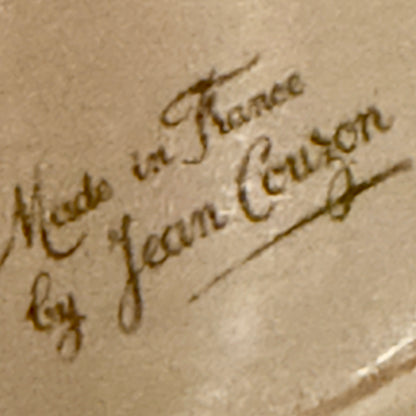 Made in France
by Jean Couzon